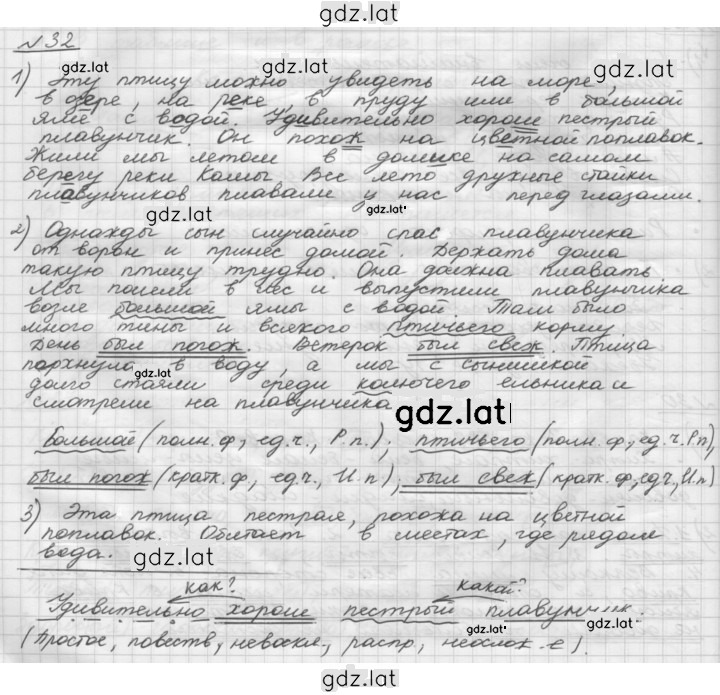 gdz.lat
№32
gdz.lat
gdz.lat
1) Эту птицу можно увидеть на море,
в озере, на реке в пруду или в большой
яме с водой. Удивительно хорош пестрый
плавунчик. Он похож на цветной поплавок.
Жили мы летом в домишке на самом
берегу реки Камы. Все лето дружные стайки
плавунчиков плавали у нас перед глазами.
gdz.lat
gdz.lat
2) Однажды сын случайно спас плавунчика
от ворон и принес домой. Держать дома
такую птицу трудно. Она должна плавать.
Мы пошли в лес и выпустили плавунчика
возле большой ямы с водой. Там было
много тины и всякого птичьего корму.
День был погож. Ветерок был свеж. Птица
порхнула в воду, а мы с сынишкой
gdz.lat
долго стояли среди колючего ельника и
смотрели на плавунчика
gdz.lat
Большой (полн. ф., ед. ч., Р. п.); птичьего (полн. ф., ед. ч. Р. п),
был погож (кратк. ф, ед. ч., И. п); был свеж (кратк. ф, ед. ч, И. п)
3) Эта птица пестрая, похожа на цветной
поплавок. Обитает в местах, где рядом
вода.
gdz.lat
как? какой?
Удивительно хорош пестрый плавунчик.
gdz.lat
gdz.lat
(Простое, повеств, невоскл, распр, неослож-е).
gdz.lat